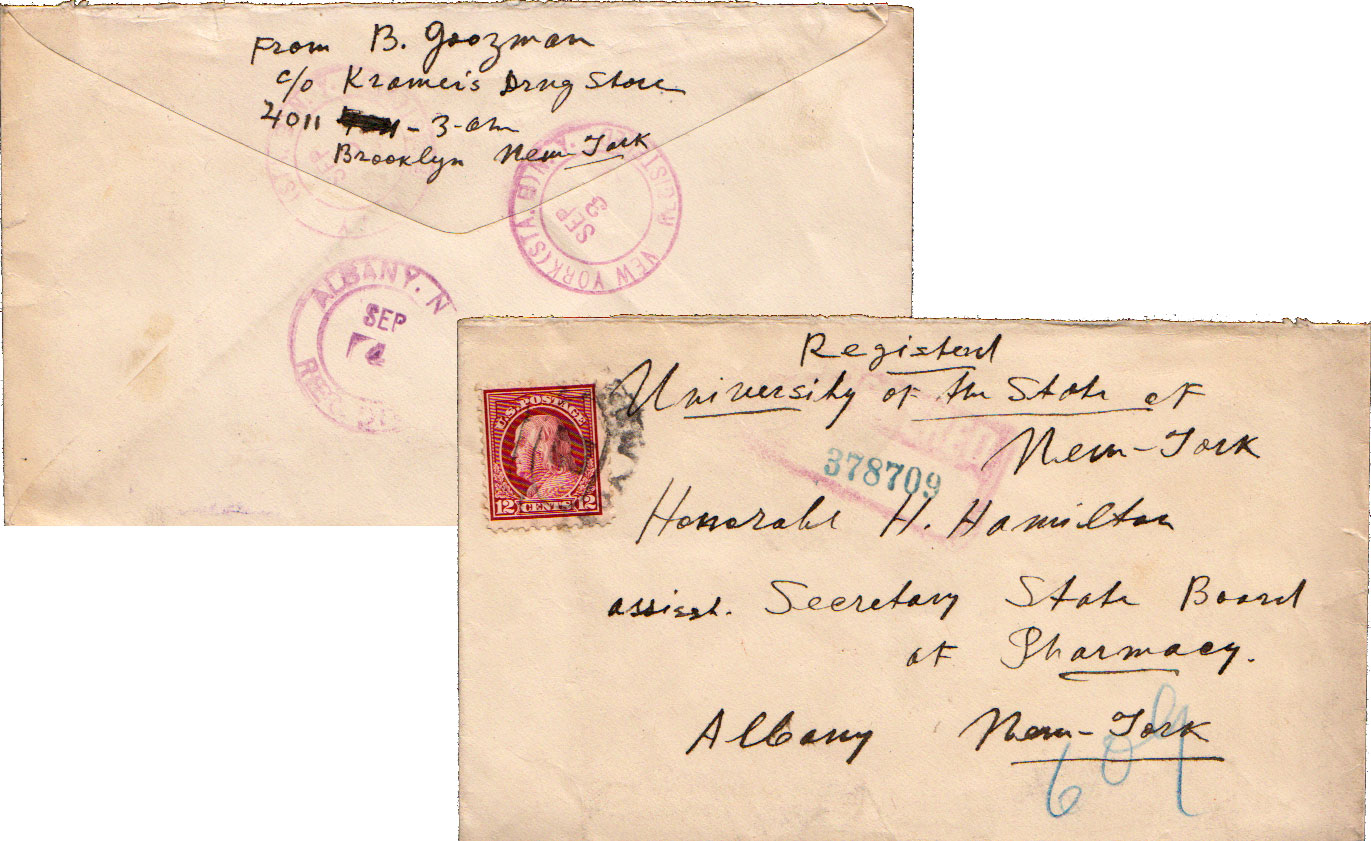 From B. Goozman
c/o Kramer's Drug Store
4011 - 3-
Brooklyn New-York
NEW YORK (STA. B) N.Y. REGISTERED
SEP
3
ALBANY, N
SEP
4
REG. DIV
Registerd
University of the State of
New-York
378709
U.S. POSTAGE
12 CENTS 12
Honorable H. Hamilton
assisst. Secretary State Board
of Pharmacy.
Albany New-York